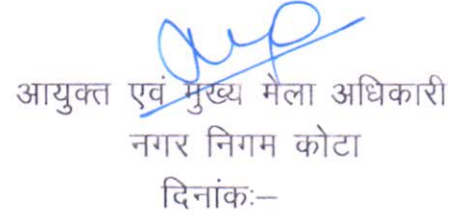 आयुक्त एवं मुख्य मेला अधिकारी
नगर निगम कोटा
दिनांक:–